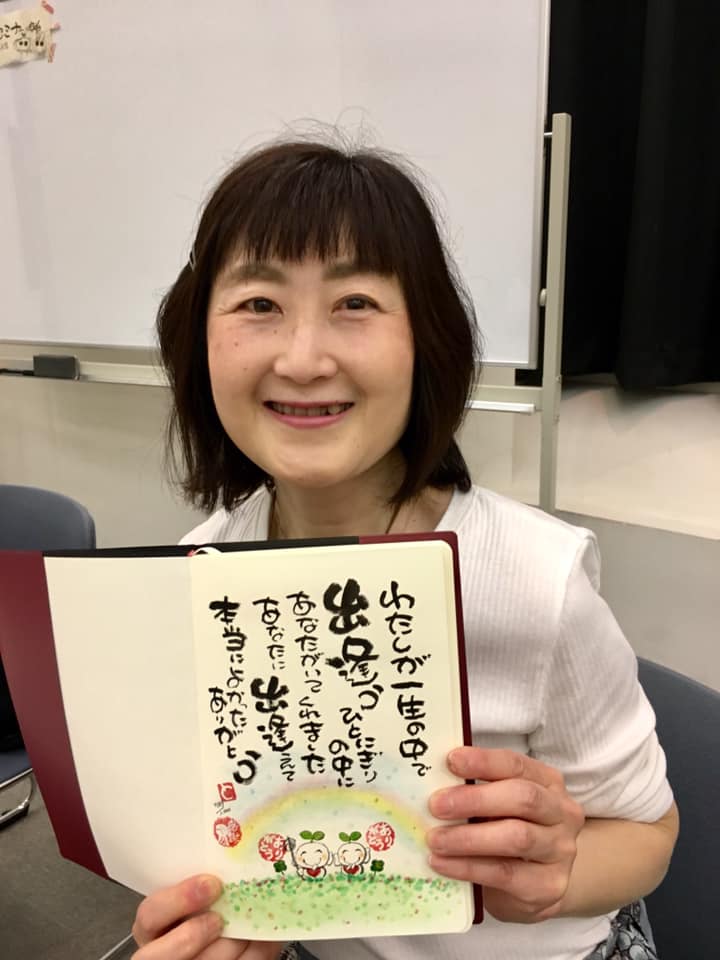 わたしが一生の中で
出逢う ひとにぎりの中に
あなたがいてくれました
あなたに 出逢えて
本当によかった
ありがとう